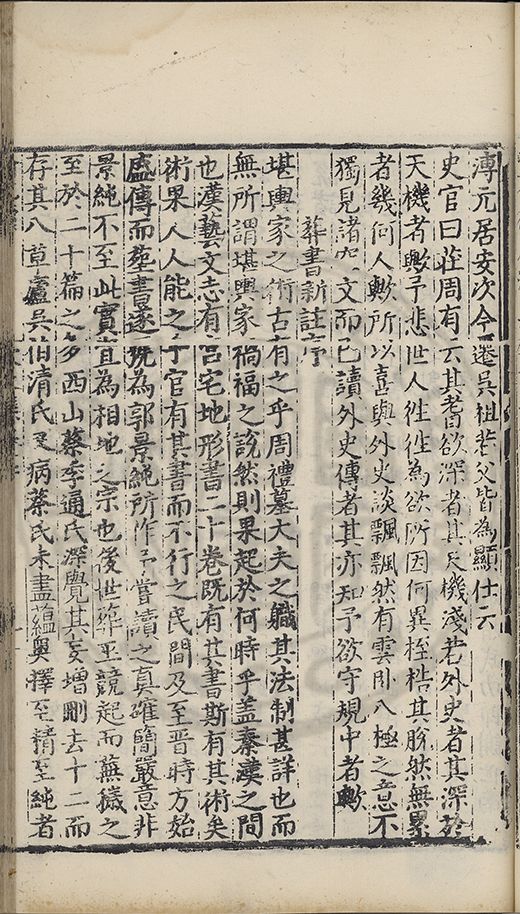 溥元居安次今遷吳祖若父皆為顯仕云
史官曰莊周有云其耆欲深者其天機淺若外史者其深於
天機者歟予悲世人徃徃為欲所因何異桎梏其脫然無累
者幾何人歟所以喜與外史談飄飄然有雲卧八極之意不
獨見諸 文而已讀外史傳者其亦知予欲守規中者歟
葬書新註序
堪輿家之術古有之乎周禮墓大夫之職其法制甚詳也而
無所謂堪輿家禍福之說然則果起於何時乎盖秦漢之間
也漢藝文志有宫宅地形書二十卷既有其書斯有其術矣
術果人人能之乎官有其書而不行之民間及至晉時方始
盛傳而葬書遂 為郭景純所作予嘗讀之真確簡嚴意非
景純不至此實 為相地之宗也後世 巫競起而蕪穢之
至於二十篇之多西山蔡季通氏深覺其妄增刪去十二而
存其八草廬吳伯清氏又病蔡氏未盡蘊奥擇至精至純者